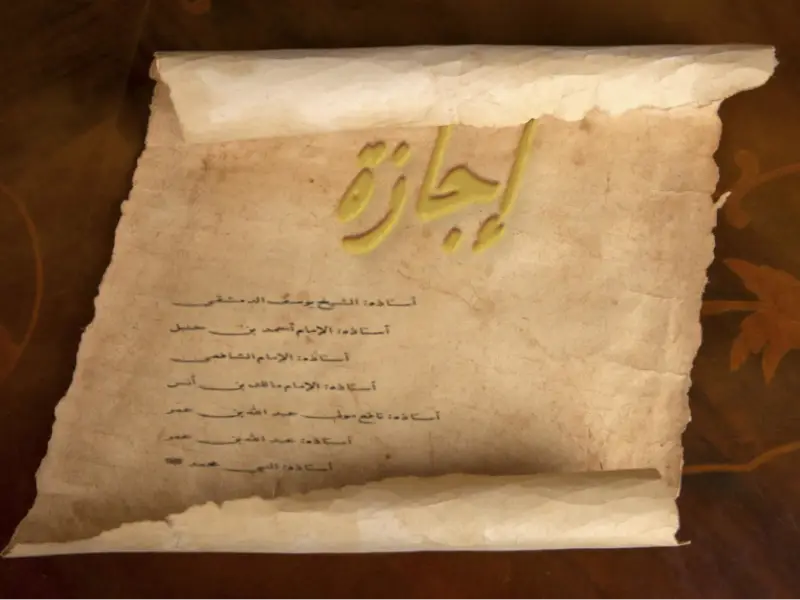 إجازة
أستاذه: الشيخ يوسف الدمشقي
أستاذه: الإمام أحمد بن حنبل
أستاذه: الإمام الشافعي
أستاذه: الإمام مالك بن أنس
أستاذه: نافع مولى عبد الله بن عمر
أستاذه: عبد الله بن عمر
أستاذه: النبي محمد ﷺ